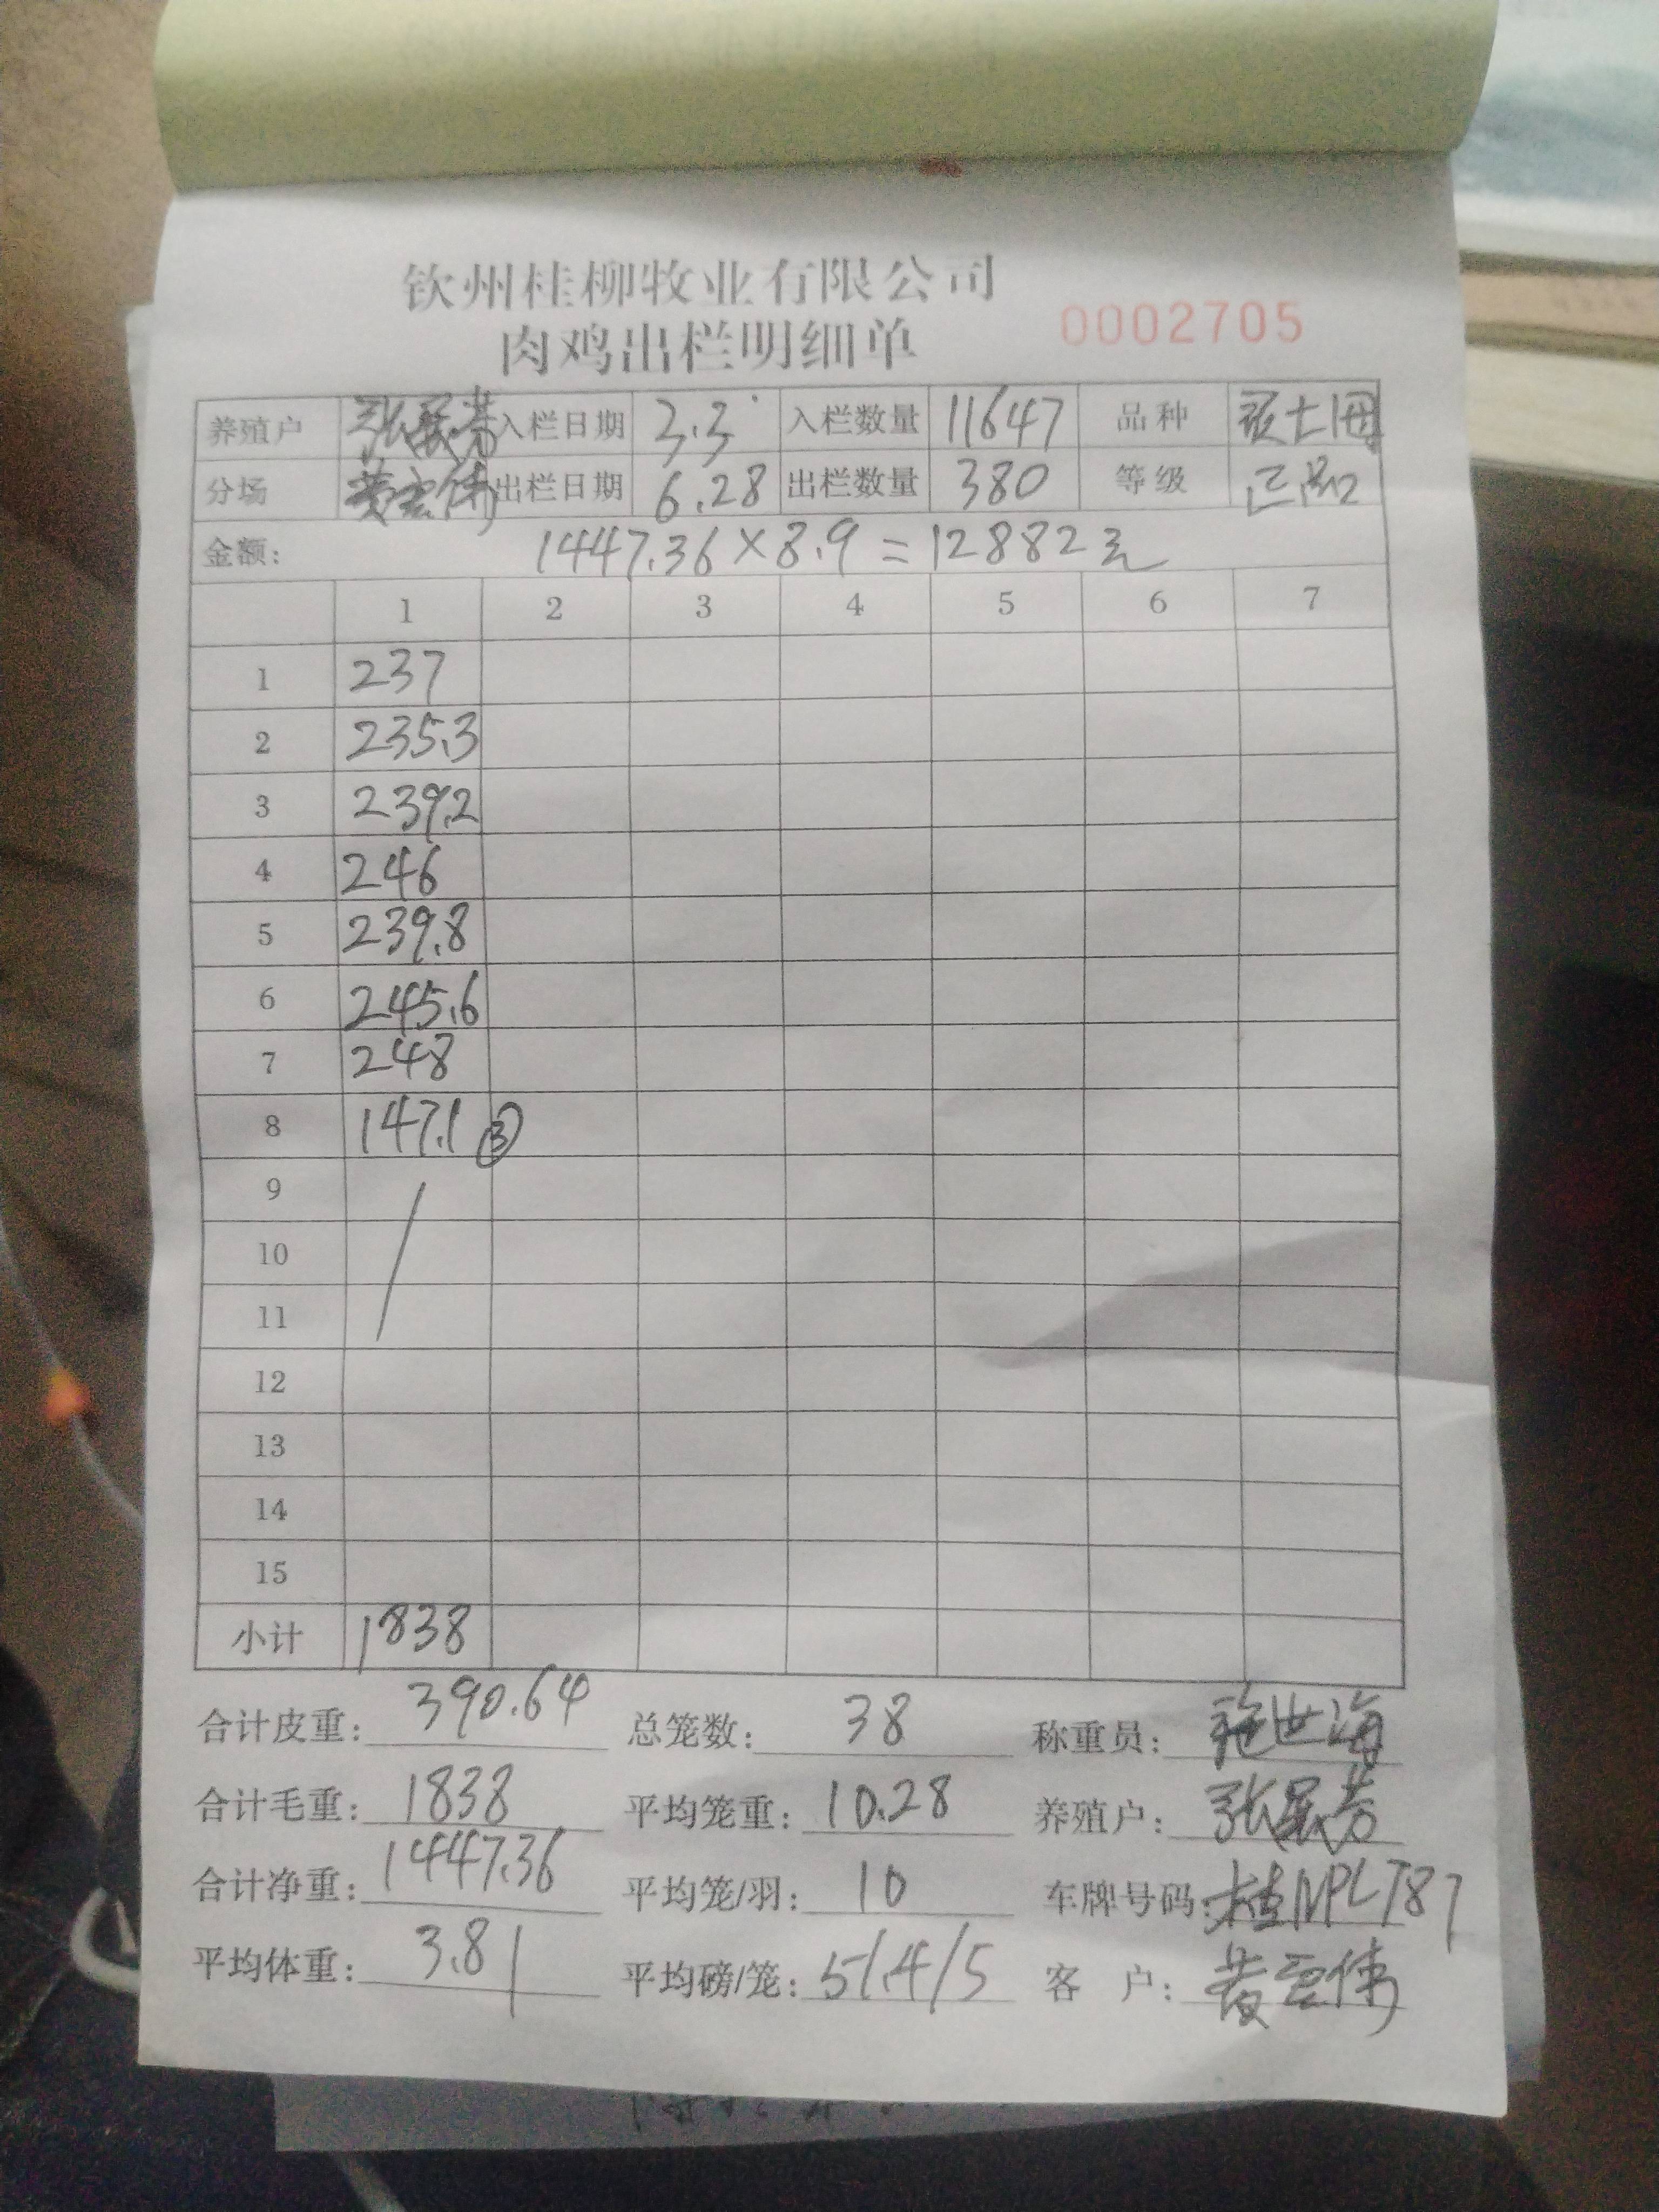 钦州桂柳牧业有限公司
肉鸡出栏明细单 0002705
养殖户 张 芳 入栏日期 3.3 入栏数量 11647 品种
分场 黄宏伟 出栏日期 6.28 出栏数量 380 等级 正品
金额: 1447.36×8.9=12882元
1 2 3 4 5 6 7
1 237
2 235.3
3 239.2
4 246
5 239.8
6 245.6
7 248
8 147.1 ③
9
10
11
12
13
14
15
小计 1838
合计皮重: 390.64 总笼数: 38 称重员: 施世海
合计毛重: 1838 平均笼重: 10.28 养殖户: 张 芳
合计净重: 1447.36 平均笼/羽: 10 车牌号码:
平均体重: 3.81 平均磅/笼: 51.4/5 客 户: 黄宏伟